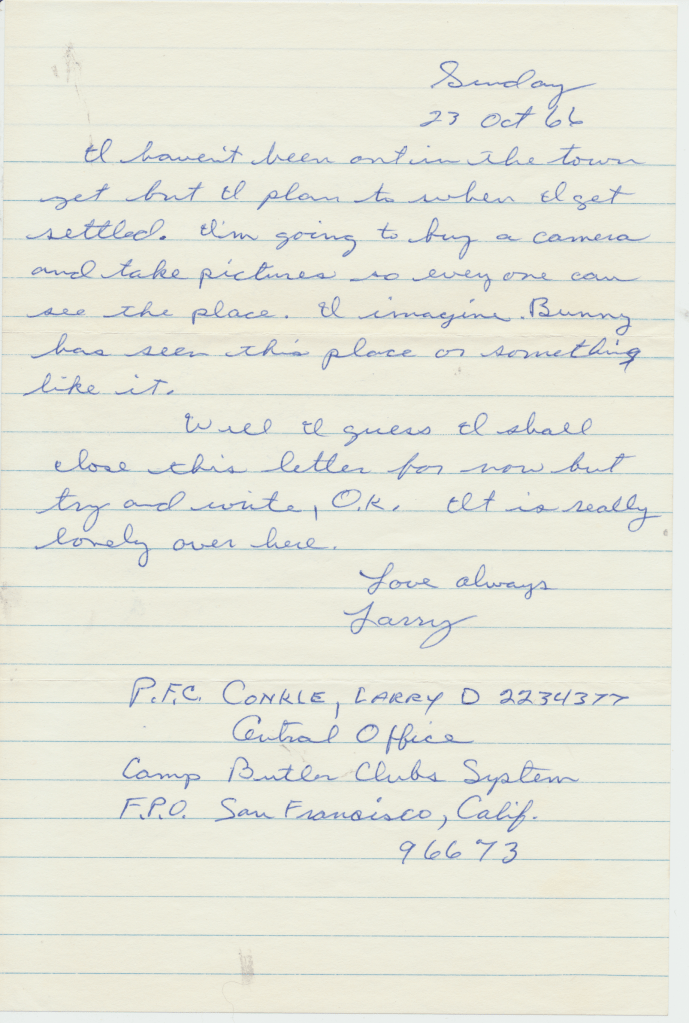 Sunday
23 Oct 66
I haven't been out in the town
yet but I plan to when I get
settled. I'm going to buy a camera
and take pictures so everyone can
see the place. I imagine Bunny
has seen this place or something
like it.
Well I guess I shall
close this letter for now but
try and write, O.K. It is really
lonely over here.
Love always
Larry
P.F.C. CONKLE, LARRY D 2234377
Central Office
Camp Butler Clubs System
F.P.O. San Francisco, Calif.
96673